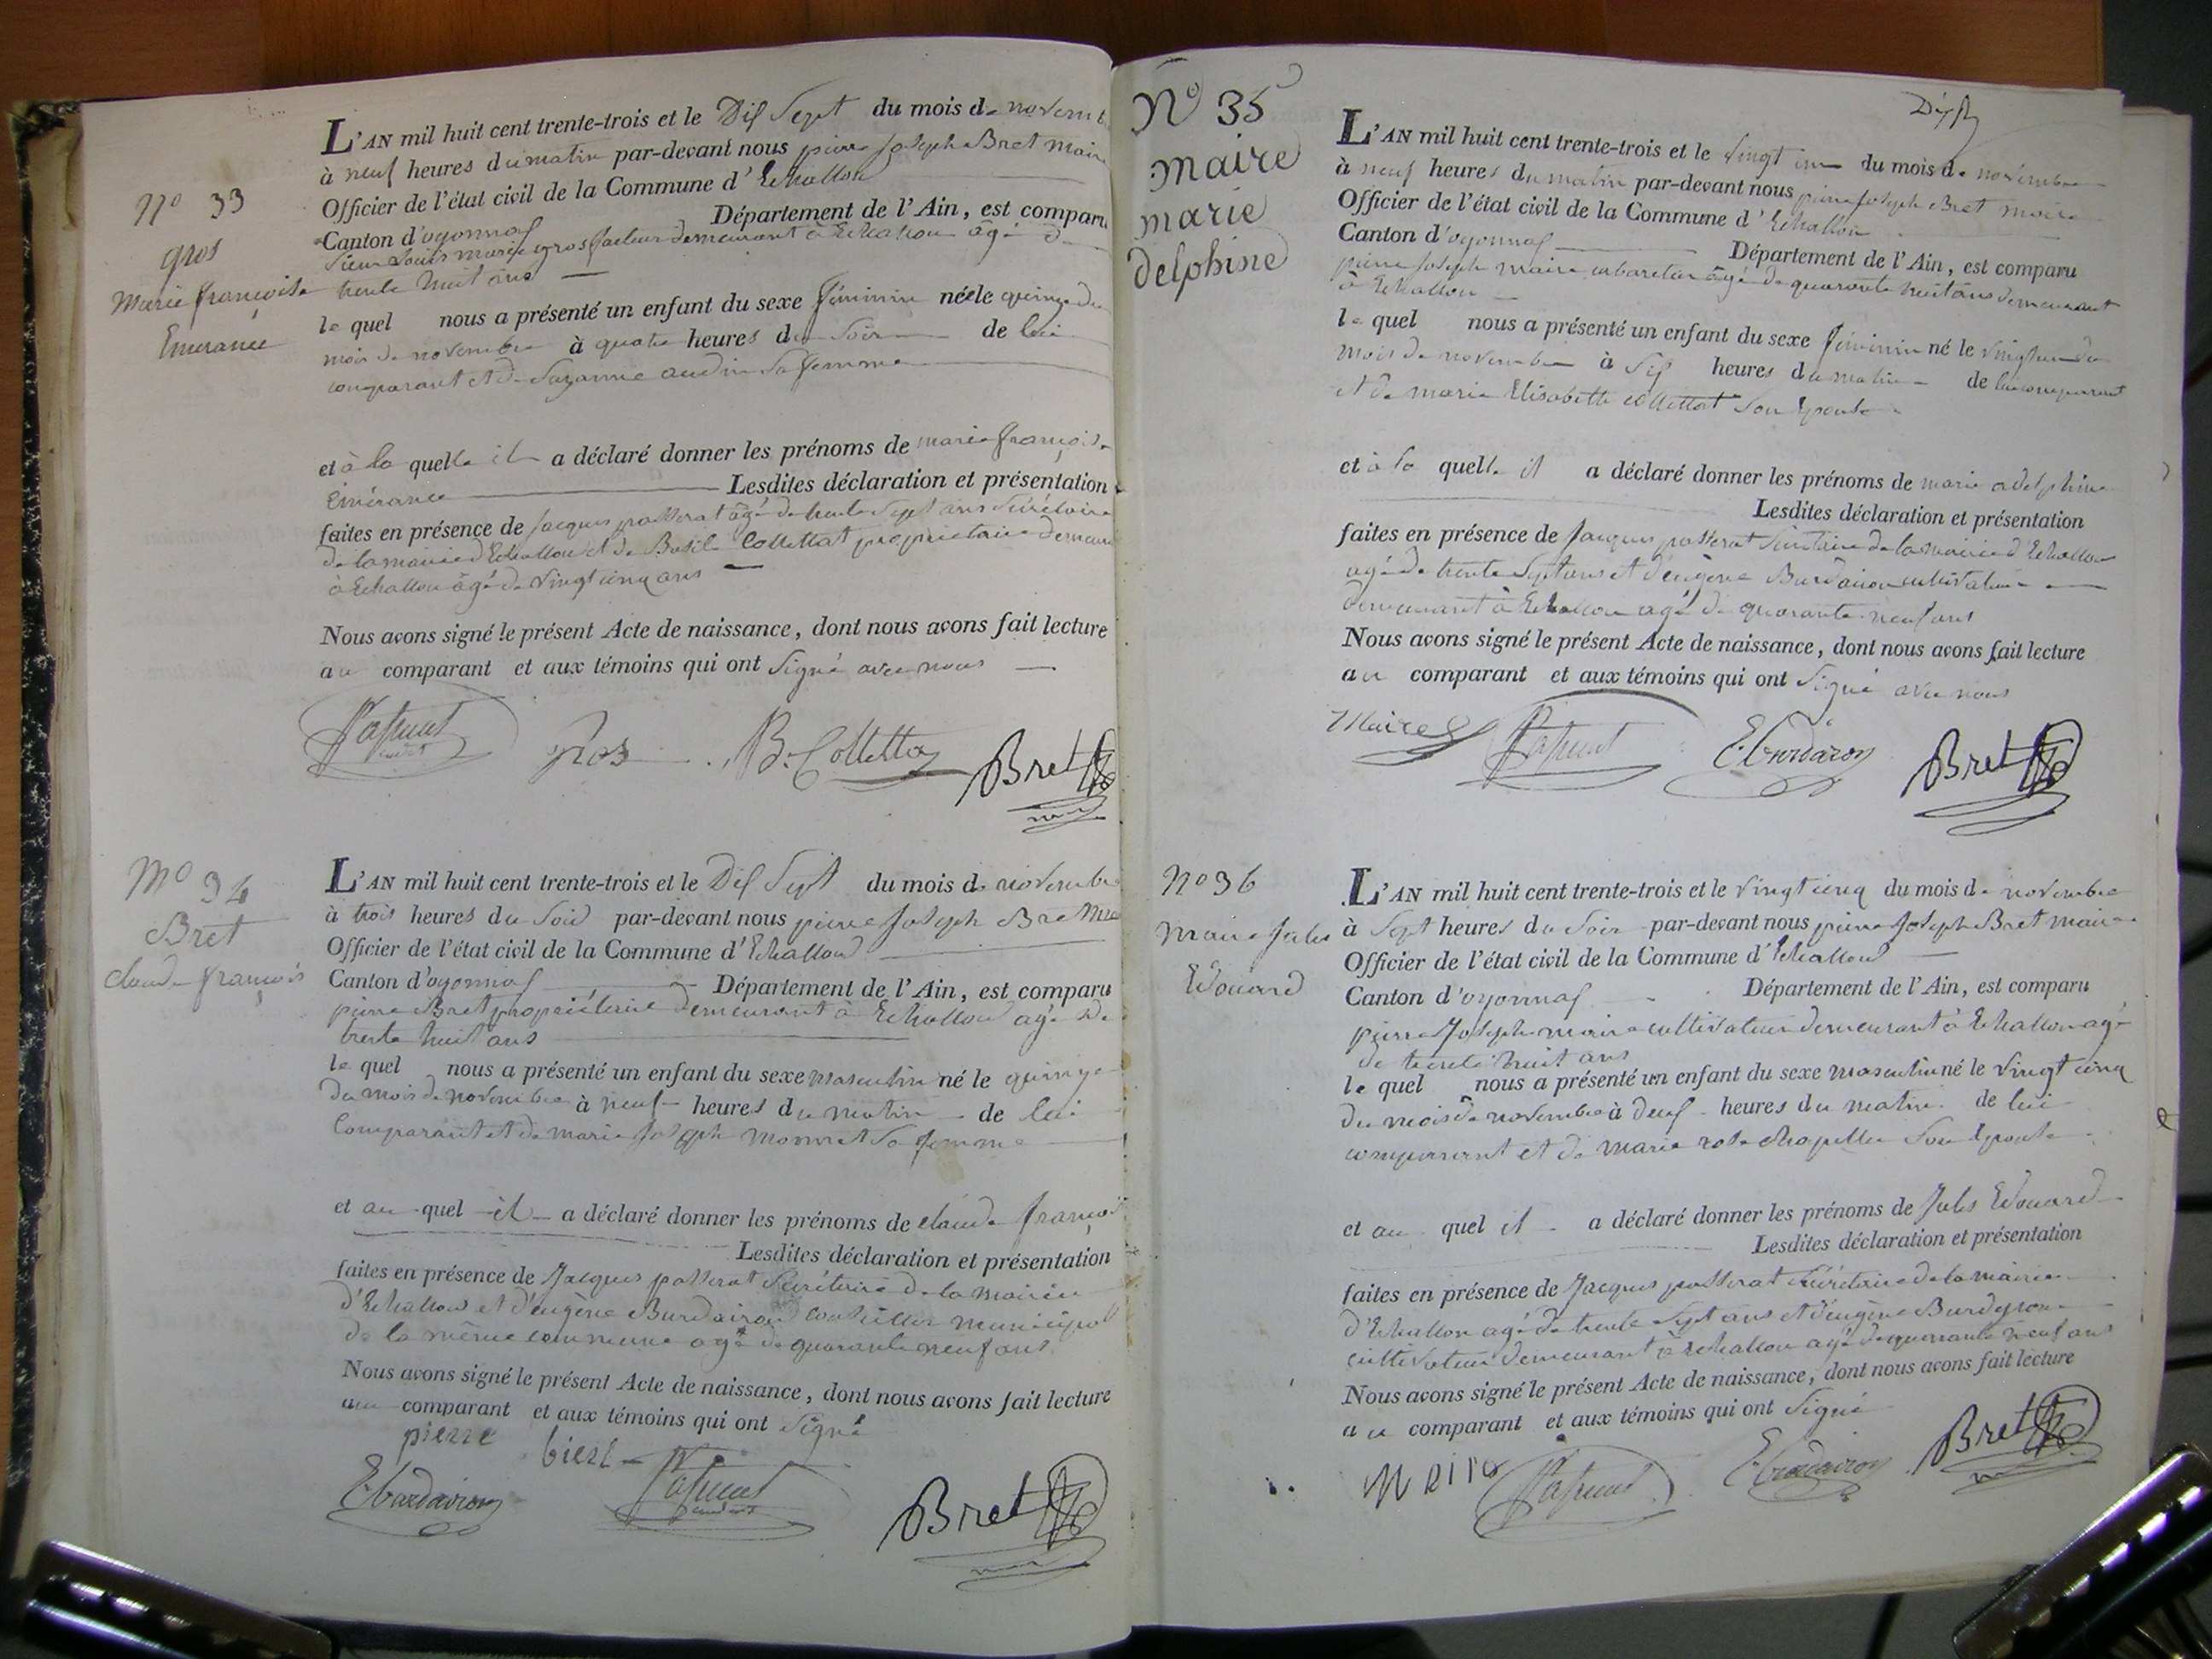 N° 33
gros
Marie françoise
Emerance
L'AN mil huit cent trente-trois et le Dix Sept du mois de novemb
à neuf heures du matin par-devant nous pierre Joseph Bret maire
Officier de l'état civil de la Commune d'Echallon
Canton d'oyonnax Département de l'Ain, est comparu
Sieur Louis marie gros facteur demeurant à Echallon âgé de
trente huit ans
le quel nous a présenté un enfant du sexe féminin née le quinze du
mois de novembre à quatre heures du Soir de lui
comparant et de Suzanne audin Sa femme
et à la quelle il a déclaré donner les prénoms de marie françoise
Emérance Lesdites déclaration et présentation
faites en présence de Jacques passerat âgé de trente Sept ans Sécrétaire
de la mairie d'Echallon et de Basile Collettat propriétaire demeura
à Echallon âgé de vingt cinq ans
Nous avons signé le présent Acte de naissance, dont nous avons fait lecture
au comparant et aux témoins qui ont Signé avec nous
Passerat gros B. Collettaz Bret
N° 34
Bret
claude françois
L'AN mil huit cent trente-trois et le Dix Sept du mois de novembre
à trois heures du Soir par-devant nous pierre Joseph Bret
Officier de l'état civil de la Commune d'Echallon
Canton d'oyonnax Département de l'Ain, est comparu
pierre Bret propriétaire demeurant à Echallon agé de
trente huit ans
le quel nous a présenté un enfant du sexe masculin né le quinze
du mois de novembre à neuf heures du matin de lui
Comparant et de marie Joseph monnet Sa femme
et au quel il a déclaré donner les prénoms de claude françois
Lesdites déclaration et présentation
faites en présence de Jacques passerat Sécrétaire de la mairie
d'Echallon et d'eugène Burdairon conseiller municipal
de la même commune agé de quarante neuf ans
Nous avons signé le présent Acte de naissance, dont nous avons fait lecture
au comparant et aux témoins qui ont Signé
pierre
E burdairon Passerat Bret
N° 35
maire
marie
delphine
L'AN mil huit cent trente-trois et le vingt un du mois de novembre
à neuf heures du matin par-devant nous pierre Joseph Bret maire
Officier de l'état civil de la Commune d'Echallon
Canton d'oyonnax Département de l'Ain, est comparu
pierre Joseph maire cabaretier âgé de quarante huit ans demeurant
à Echallon
le quel nous a présenté un enfant du sexe féminin né le vingt un du
mois de novembre à Six heures du matin de lui comparant
et de marie Elisabeth collettat Son Epouse
et à la quelle il a déclaré donner les prénoms de marie adelphine
Lesdites déclaration et présentation
faites en présence de Jacques passerat Sécrétaire de la mairie d'Echallon
agé de trente Sept ans et d'eugène Burdairon cultivateur
demeurant à Echallon agé de quarante neuf ans
Nous avons signé le présent Acte de naissance, dont nous avons fait lecture
au comparant et aux témoins qui ont Signé avec nous
Maire Passerat E burdairon Bret
N° 36
maire Jules
Edouard
L'AN mil huit cent trente-trois et le vingt cinq du mois de novembre
à Sept heures du Soir par-devant nous pierre Joseph Bret maire
Officier de l'état civil de la Commune d'Echallon
Canton d'oyonnax Département de l'Ain, est comparu
pierre Joseph maire cultivateur demeurant à Echallon agé
de trente huit ans
le quel nous a présenté un enfant du sexe masculin né le vingt cinq
du mois de novembre à deux heures du matin de lui
comparant et de marie rose chapelle Son Epouse
et au quel il a déclaré donner les prénoms de Jules Edouard
Lesdites déclaration et présentation
faites en présence de Jacques passerat Sécrétaire de la mairie
d'Echallon agé de trente Sept ans et d'eugène Burdeyron
cultivateur demeurant à Echallon agé de quarante neuf ans
Nous avons signé le présent Acte de naissance, dont nous avons fait lecture
au comparant et aux témoins qui ont Signé
Passerat E burdairon Bret